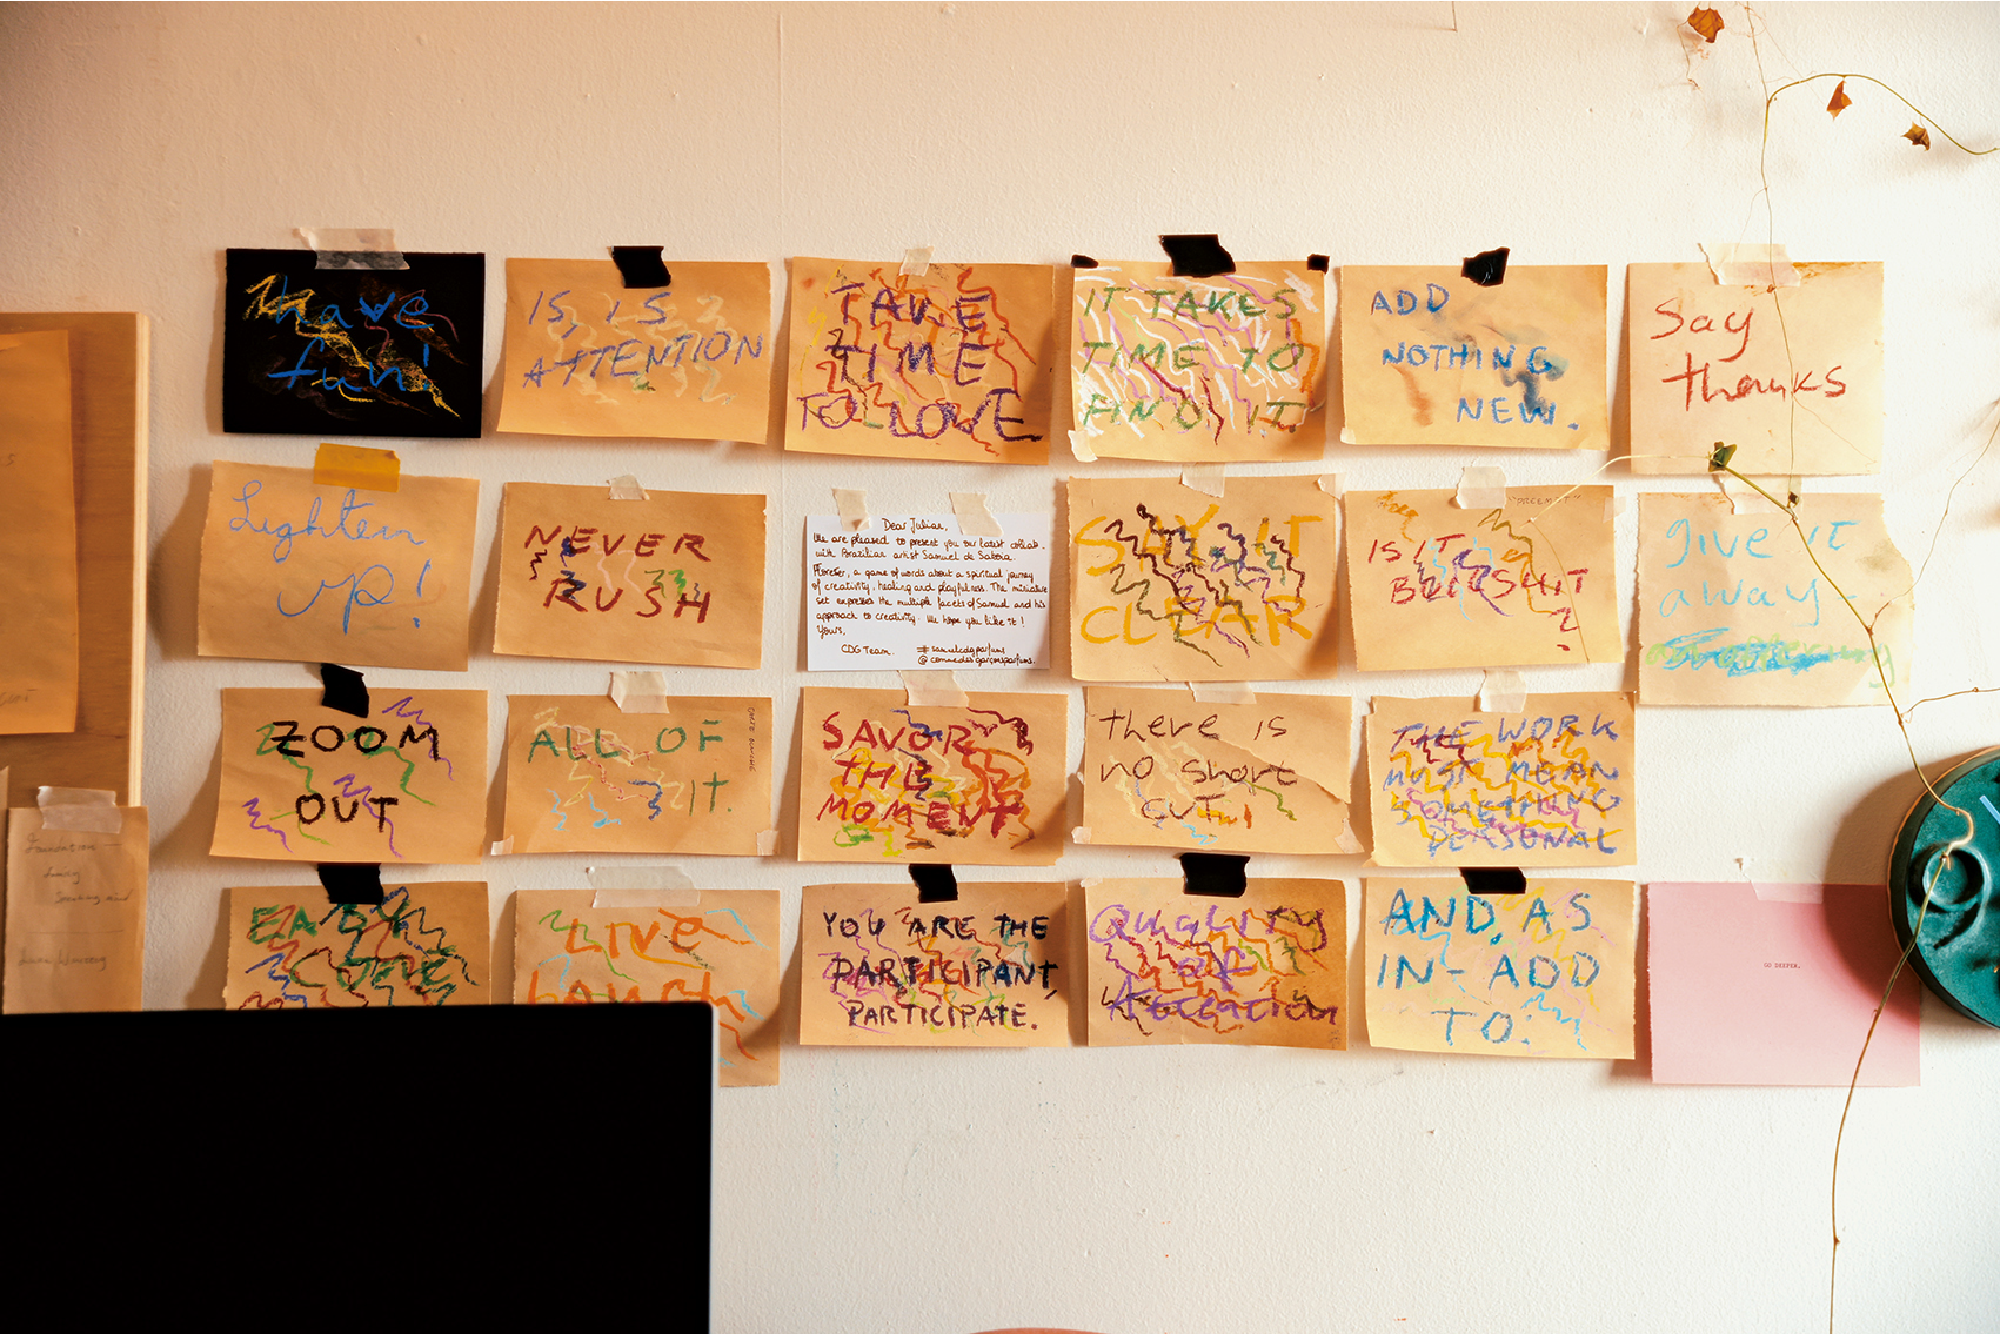 have
fun!
IS, IS
ATTENTION
TAKE
TIME
TO LOVE
IT TAKES
TIME TO
FIND IT
ADD
NOTHING
NEW.
Say
thanks
Lighten
up!
NEVER
RUSH
Dear Julian,
We are pleased to present you our latest collab.
with Brazilian artist Samuel de Saboia.
Floreser, a game of words about a spiritual journey
of creativity, healing and playfulness. The miniature
set expresses the multiple facets of Samuel and his
approach to creativity. We hope you like it!
Yours,
CDG Team.
#samuelcdgparfums
@commedesgarconsparfums.
SAY IT
CLEAR
IS IT
BULLSHIT
?
give it
away-
ZOOM
OUT
ALL OF
IT.
CARTE BLANCHE
SAVOR
THE
MOMENT
there is
no short
CUT!
THE WORK
MUST MEAN
SOMETHING
PERSONAL
Foundation
EASY
COME
Live
Laugh
YOU ARE THE
PARTICIPANT,
PARTICIPATE.
Quality
of
Attention
AND, AS
IN- ADD
TO:
GO DEEPER.